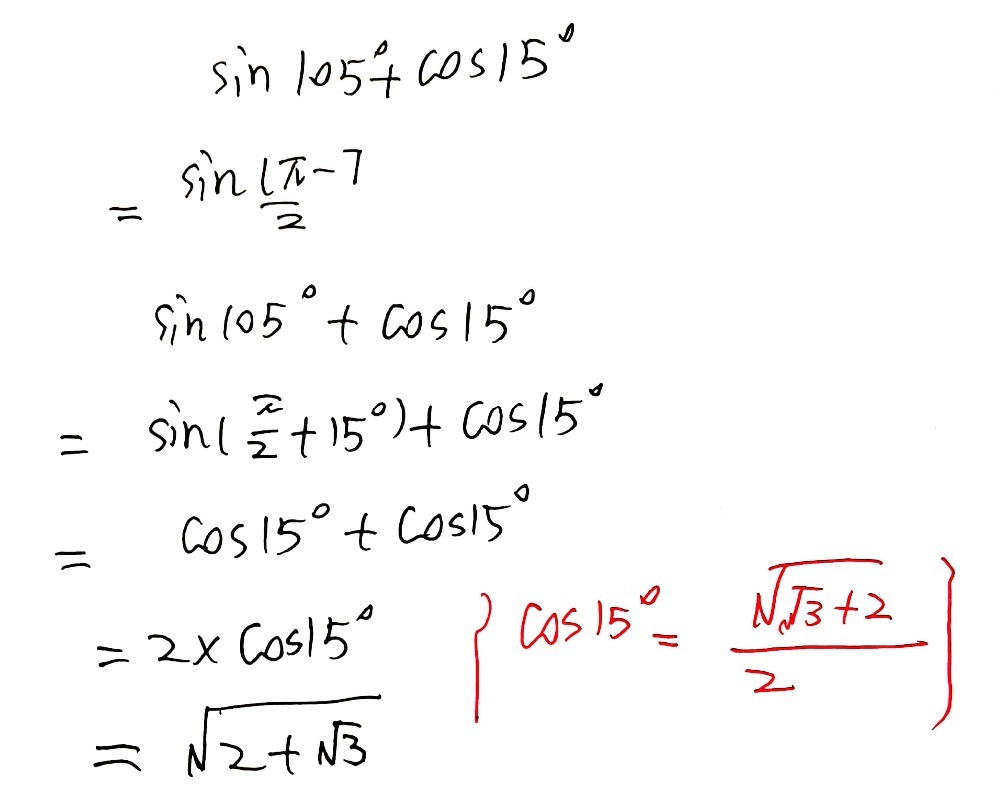 sin 105° + cos 15°
= sin (π - 7
2
sin 105° + cos 15°
= sin( π/2 + 15°) + cos 15°
= cos 15° + cos 15°
= 2 x cos 15° { cos 15° = √(√3 + 2) / 2 }
= √(2 + √3)